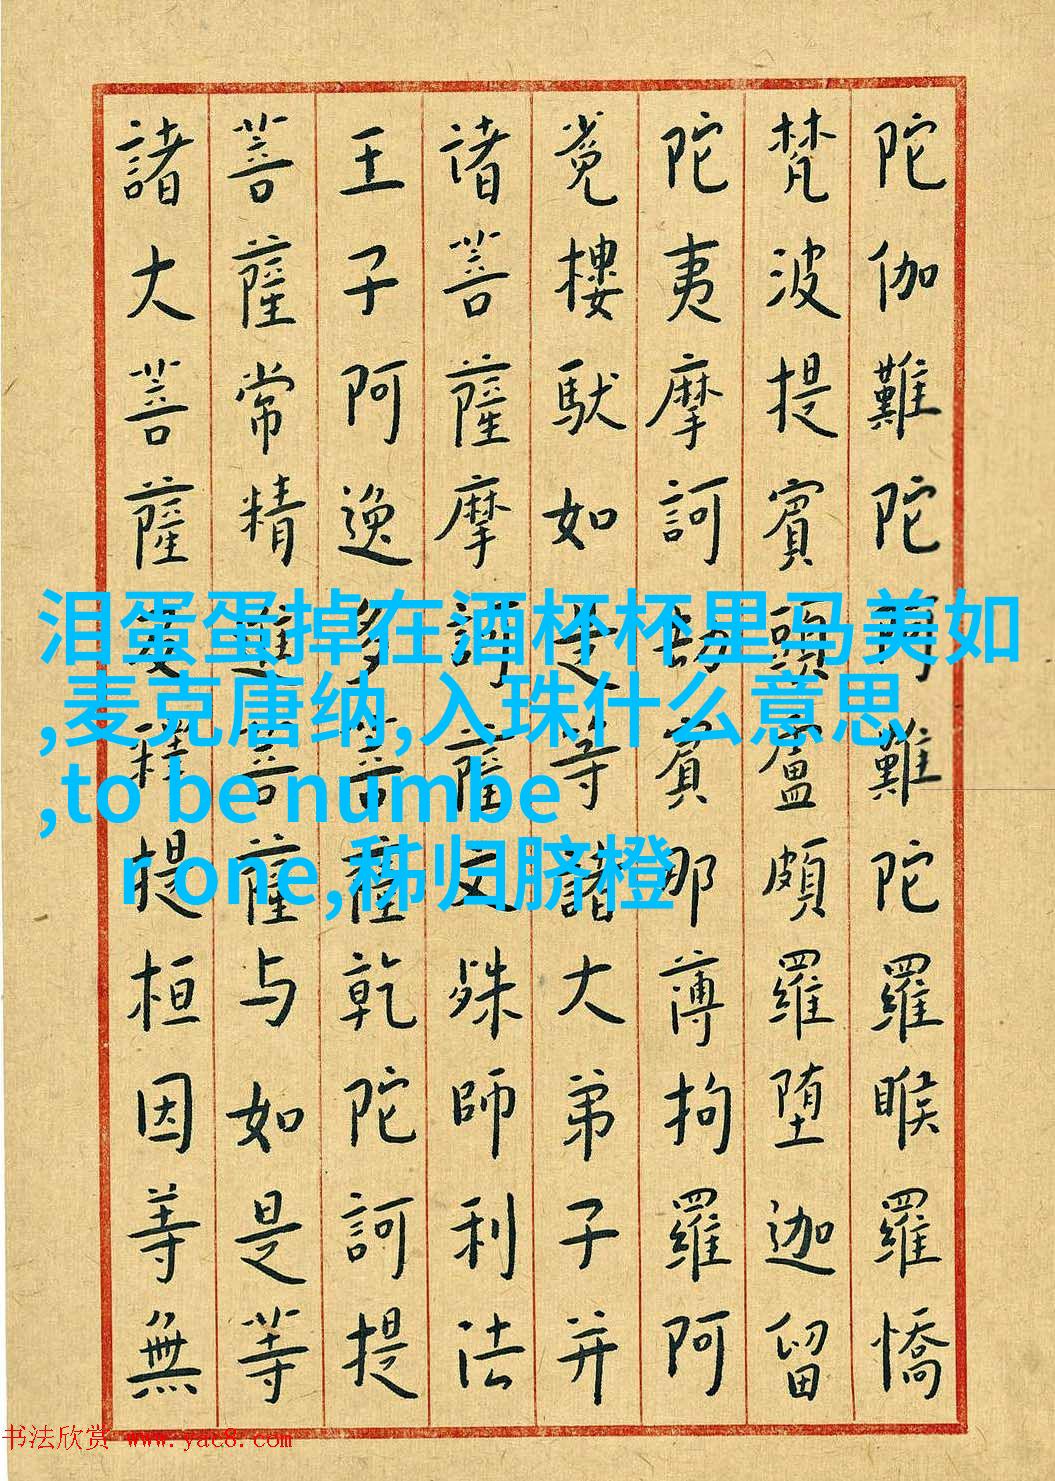 陀伽難陀阿難陀羅睺羅憍
梵波提賓頭盧頗羅堕迦留
陀夷摩訶劫賓那薄拘羅阿
㝹樓馱如是等諸大弟子并
诸菩薩摩訶薩文殊師利法
王子阿逸多菩薩乾陀訶提
菩薩常精進菩薩与如是等
諸大菩薩及釋提桓因等無
泪蛋蛋掉在酒杯杯里马美如
,麦克唐纳,入珠什么意思
,to be numbe
r one,秭归脐橙
书法欣赏 www.yac8.com